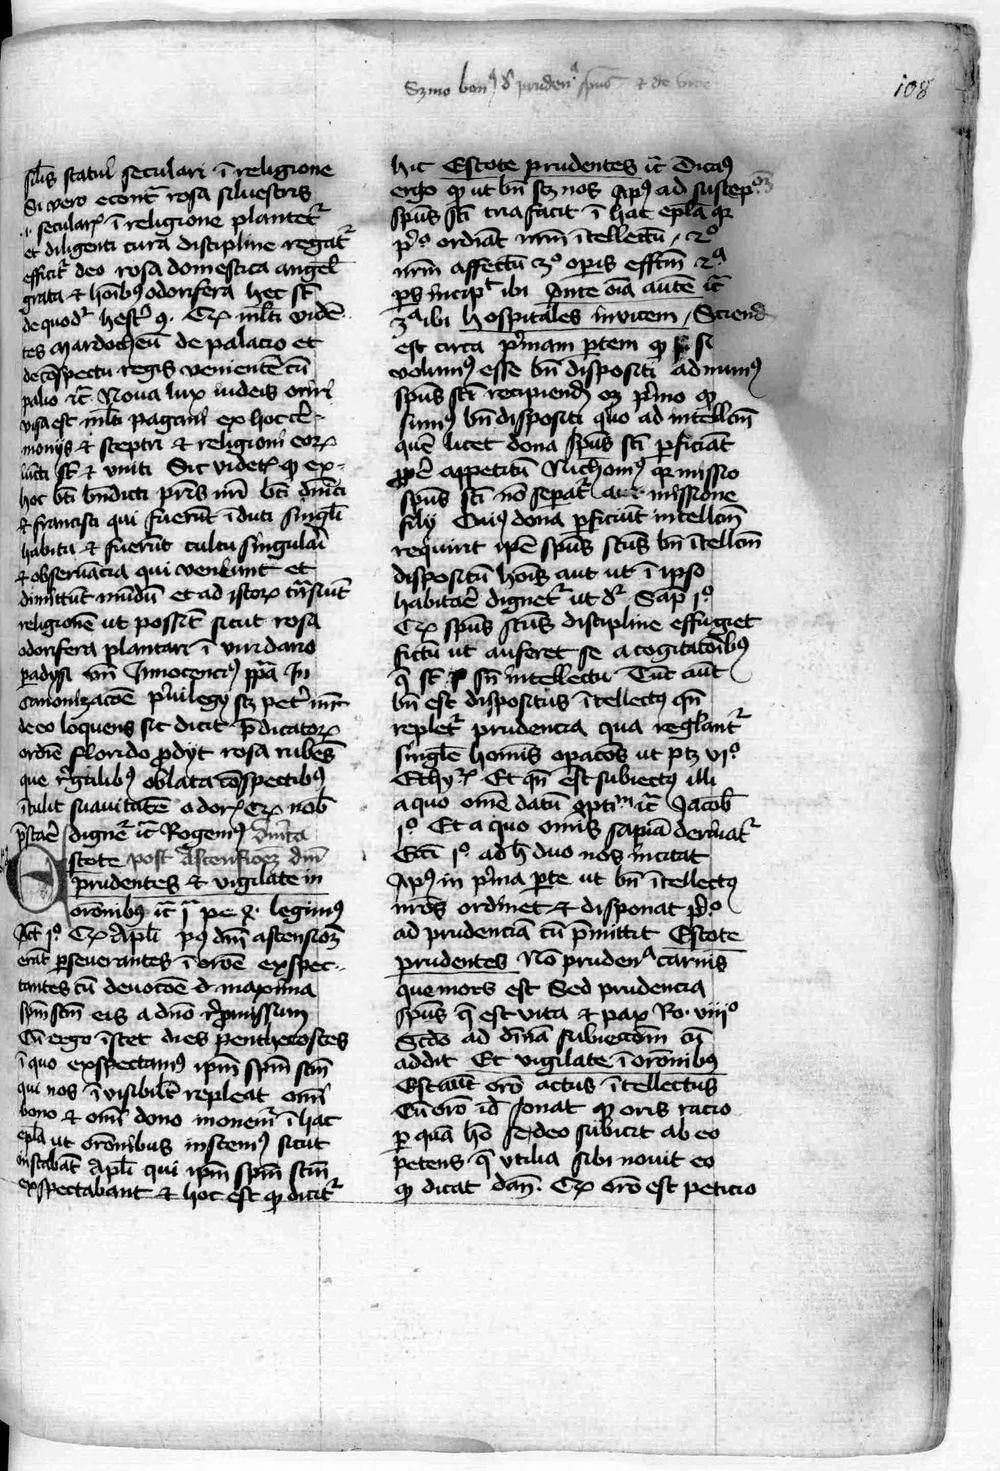 Sermo bonus de prudena spus et de vir
108
silis statui seculari ī religione
Si vero econt̄ rosa silvestris
.i. secular̄ ī religione plantet᷑
et diligenti cura discipline regat᷑
efficit᷑ deo rosa domestica angel̄
grata et hoībꝰ odorifera hec st̄
de quodr̄ hest᷑ 9. Er̄ ml̄ti vidē
tes mardocheū de palacio et
de cōspectu regis venientē cū
palio ic̄ Nova lux iudeis oriri
visa est ml̄ti pagani ex hoc ce᷑
monijs et sceptri et religioni eoꝝ
iūcti st̄ et uniti Sic videt᷑ ꝙ ex
hoc bti bn̄dicti pr̄is nr̄i bti dn̄ici
et francisci qui fuerūt īduti singl̄i
habitu et fuerūt cultu singulai
et observācia qui veniunt et
dimittūt mūdū et ad istoꝝ trāsiūt
religionē ut possīt sicut rosa
odorifera plantari ī viridario
padysi vn̄ Innocenciꝰ ppa In
canonizacōe pivilegij sci pet᷑ mr̄
de eo loquens sic dicit p̄dicatoꝝ
ordīe florido ꝓdijt rosa rubēs
que rēgalibꝰ oblata cōspectibꝰ
ītulit suavitatē odoꝝ Er̄ nob̄
p̄stare dignet᷑ ic̄ Rogemꝰ dn̄ica
Estote post Ascensioꝫ dn̄i
prudentes et vigilate in
orōnibꝰ ic̄ ja pe 4. legimꝰ
Act̄ jº. Er̄ Apl̄i pꝰ dn̄i ascensioꝫ
erāt pseverantes ī orōe expec-
tantes cū devocōe maxima
spm̄ scm̄ eis a dn̄o repromissum
Cū ergo īstet dies penthecostes
ī quo expectamꝰ ipm̄ spm̄ scm̄
qui nos īvisibilit᷑ repleat omi
bono et omi dono monem᷑ ī hac
epl̄a ut orōnibus instemꝰ sicut
instabāt Apl̄i qui ipm̄ spm̄ scm̄
expectabant et hoc est ꝙ dicit᷑
hic Estote prudentes ic̄ Dicimꝰ
ergo ꝙ ut bn̄ scꝫ nos Apꝰ ad suscepoꝫ
spūs sci tria facit ī hac epl̄a qr̄
pº. ordīat nr̄m ītellectū, 2º
nr̄m affectū 3º opis effcm̄ 2a
ps incipt ibi Ante oīa autē ic̄
3a ibi hospitales invicem, Sciend
est circa p̄mam ptem ꝙ si
volumꝰ esse bn̄ dispositi ad munꝰ
spūs sci recipiend oꝫ p̄mo ꝙ
simꝰ bn̄ dispositi quo ad intellcm̄
quē licet dona spūs sci pficiāt
ꝓpe᷑ appetitū Nichomiꝰ qr̄ missio
spūs sci nō sepat᷑ a missione
filij Cuiꝰ dona pficiūt intellcm̄
requirit ipe spūs scūs bn̄ ītellcm̄
dispositū hoīs aut ut ī ipso
habitare dignet᷑ ut dr̄ Sap jº.
Er̄ spūs scūs discipline effugiet
fictū ut auferet se a cogitatōibꝰ
q̄ st̄ sn̄ intellectu Tūc aūt
bn̄ est dispositus ītellectꝰ qn̄
replet᷑ prudencia qua regūlant᷑
singl̄e hominis opacōes ut pꝫ vjº.
Ethy Et qn̄ est subiectꝰ illi
a quo omē datū optim ic̄ Jacob̄
jº. Et a quo omīs sapiā derivat᷑
Ecci jº. ad h̄ duo nos incitat
Apꝰ in p̄ma pte ut bn̄ ītellectꝰ
nr̄os ordinet et disponat pº.
ad prudenciā cū p̄mittit Estote
prudentes Nō prudena carnis
que mors est Sed prudencia
spūs q̄ est vita et pax Ro. viijº
Scdo ad dīnā subiectōm cū
addit Et vigilate ī orōnibꝰ
Est aūt orō actus ītellectus
Cū orō id̄ sonat ꝙ oris racio
p quā hō se deo subicit ab eo
petens q̄ utilia sibi novit eo
ꝙ dicat dan̄. Er̄ orō est peticio